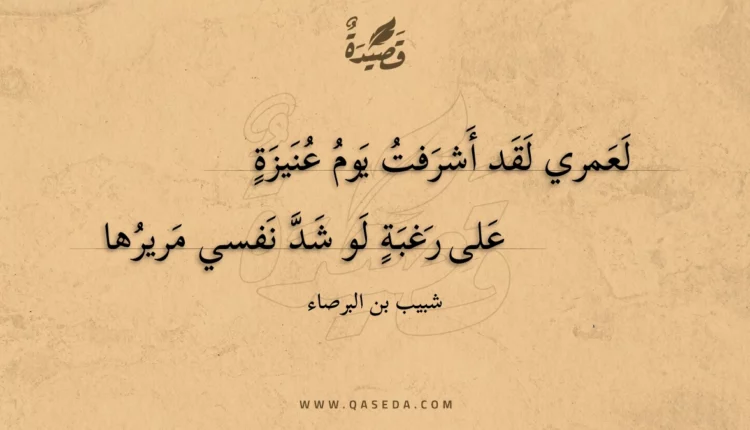 قَصِيْدَةٌ
لَعَمري لَقَد أَشرَفتُ يَومُ عُنَيزَةٍ
عَلى رَغبَةٍ لَو شَدَّ نَفسي مَريرُها
شبيب بن البرصاء
WWW.QASEDA.COM